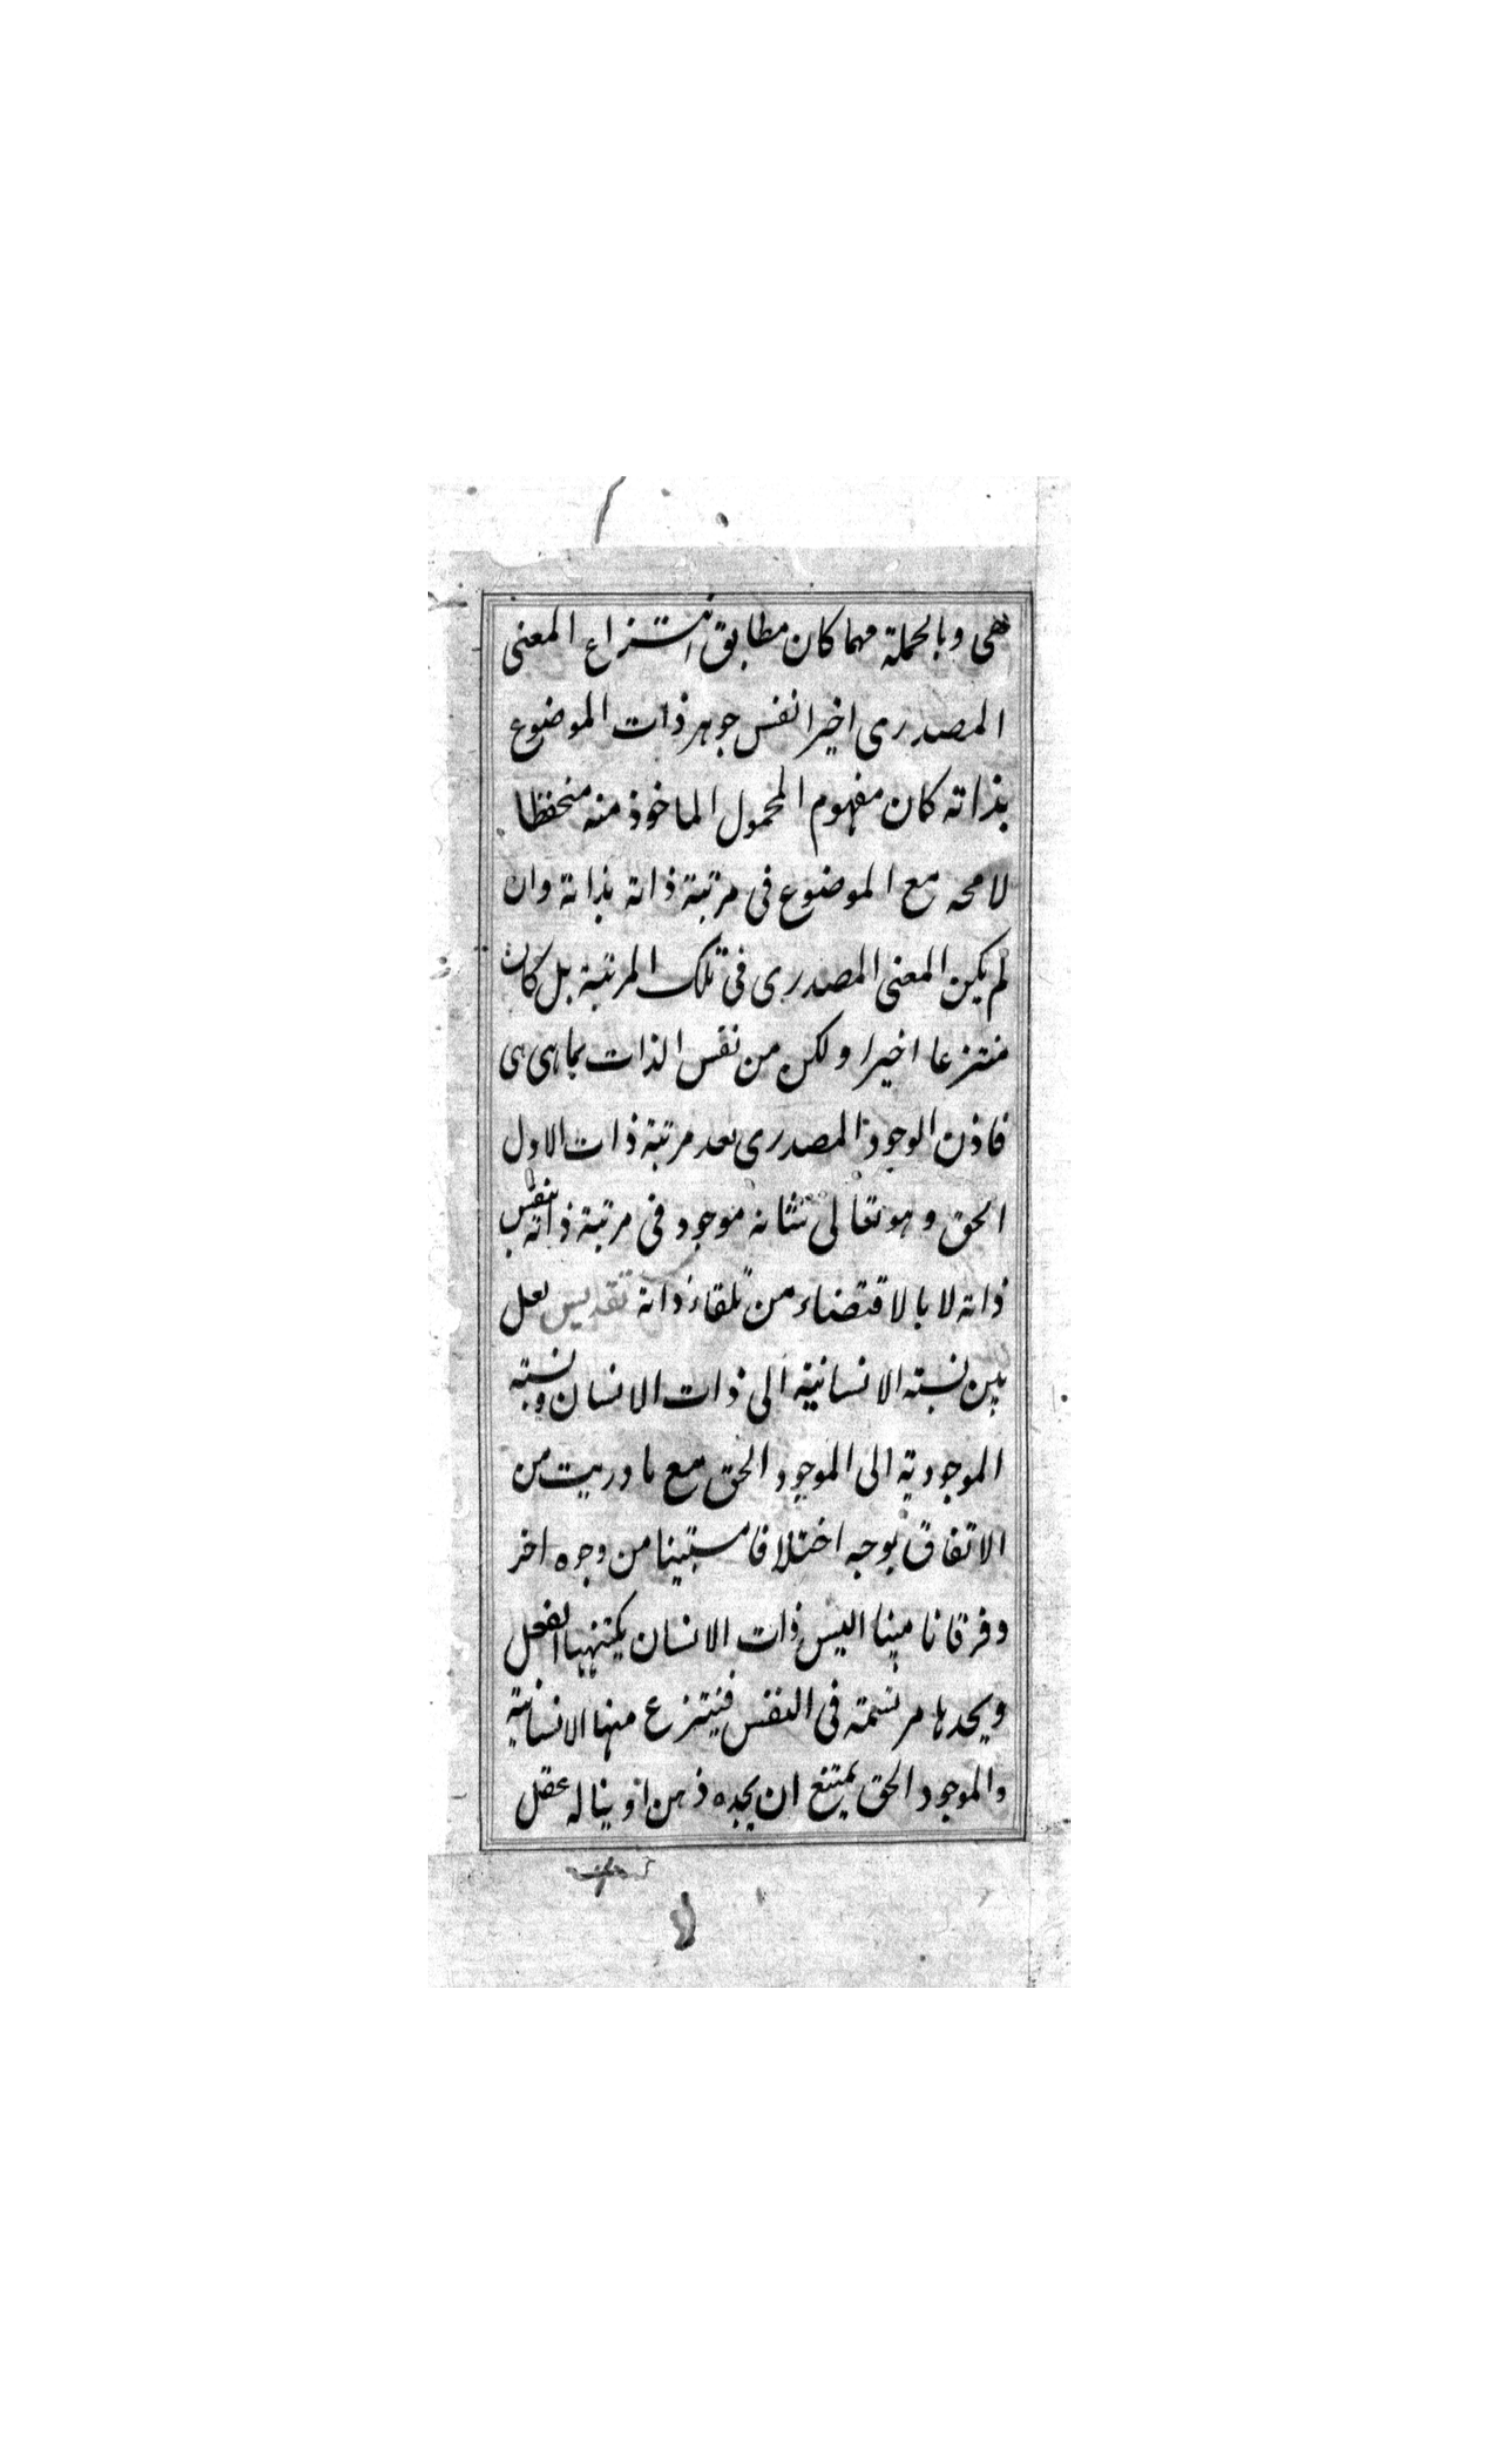 هى وبالجملة مهما كان مطابق انتزاع المعنى
المصدرى اخيرا نفس جوهر ذات الموضوع
بذاته كان مفهوم المحمول الماخوذ منه منحفظا
لا محه مع الموضوع فى مرتبة ذاته بذاته وان
لم يكن المعنى المصدرى فى تلك المرتبة بل كان
منتزعا اخيرا ولكن من نفس الذات بما هى هى
فاذن الوجود المصدرى بعد مرتبة ذات الاول
الحق وهو تعالى شانه موجود فى مرتبة ذاته بنفس
ذاته لا بالاقتضاء من تلقاء ذاته تقديس لعل
بين نسبته الانسانية الى ذات الانسان ونسبته
الموجودية الى الموجود الحق مع ما دريت من
الاتفاق بوجه اختلافا مستبينا من وجوه اخر
وفرقانا مبينا اليس ذات الانسان يكتنهها العقل
ويجدها مرتسمة فى النفس فينتزع منها الانسانية
والموجود الحق يمتنع ان يجده ذهن او يناله عقل